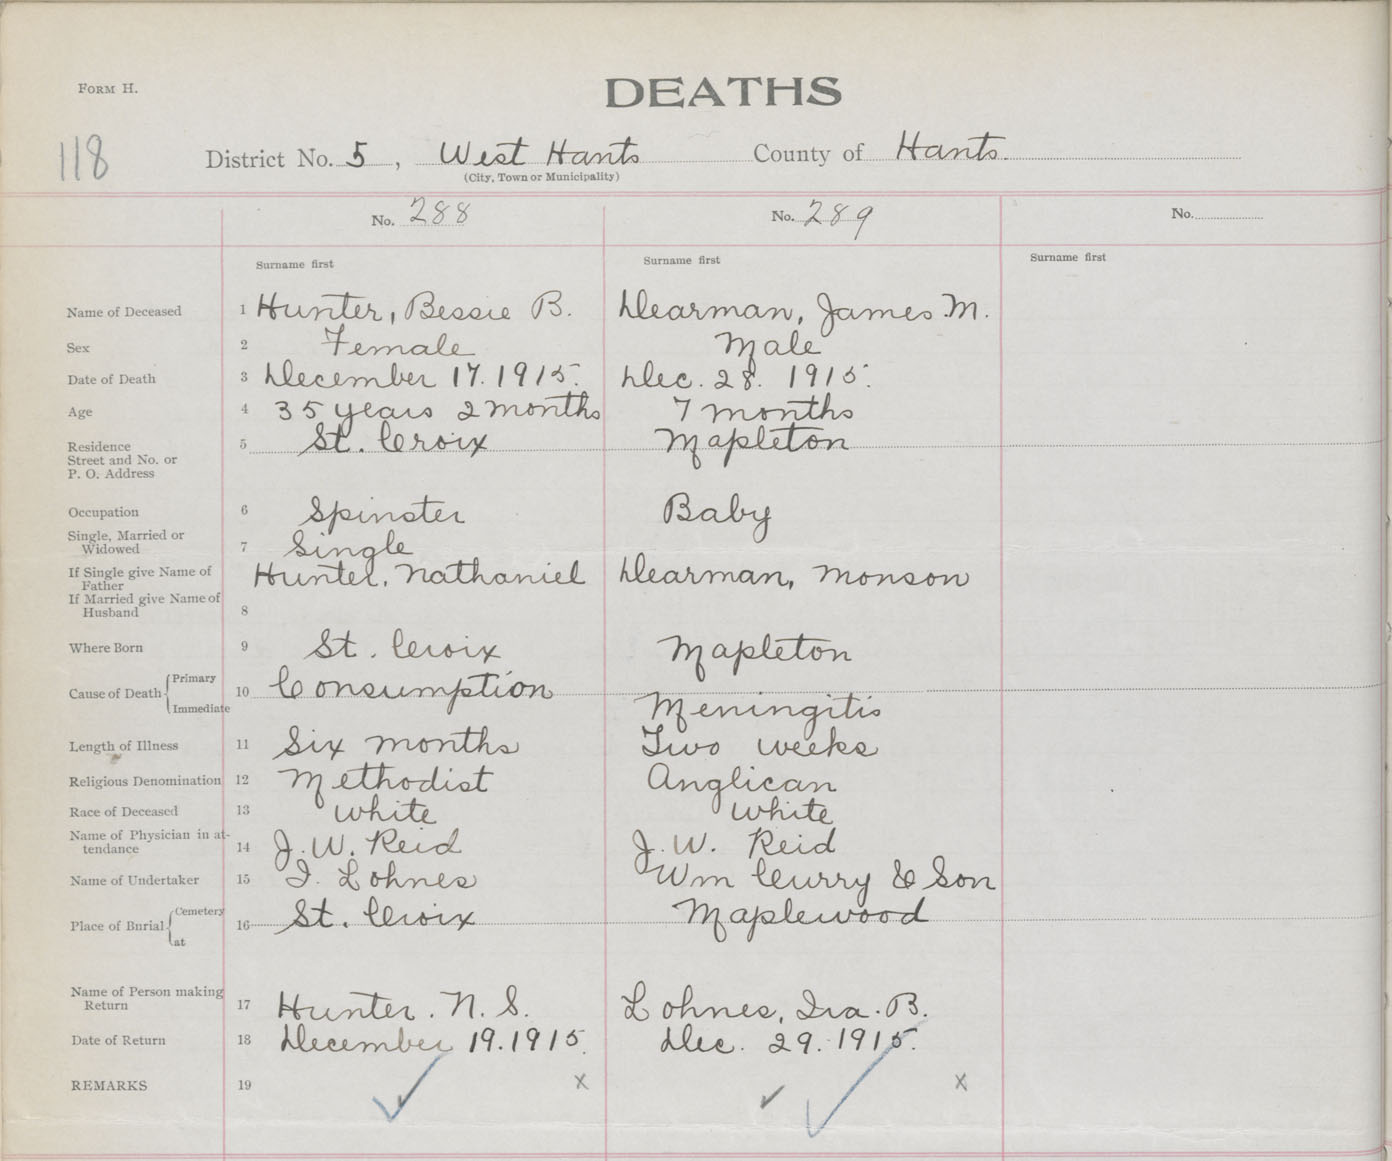 FORM H.
DEATHS
118
District No. 5, West Hants County of Hants.
(City, Town or Municipality)
No. 288 No. 289 No.
Surname first Surname first Surname first
Name of Deceased 1 Hunter, Bessie B. Dearman, James M.
Sex 2 Female Male
Date of Death 3 December 17. 1915. Dec. 28. 1915.
Age 4 35 years 2 months 7 months
Residence 5 St. Croix Mapleton
Street and No. or
P. O. Address
Occupation 6 Spinster Baby
Single, Married or
Widowed 7 Single
If Single give Name of Hunter, Nathaniel Dearman, Monson
Father
If Married give Name of
Husband 8
Where Born 9 St. Croix Mapleton
Cause of Death Primary 10 Consumption
Immediate Meningitis
Length of Illness 11 Six months Two weeks
Religious Denomination 12 Methodist Anglican
Race of Deceased 13 White White
Name of Physician in at-
tendance 14 J. W. Reid J. W. Reid
Name of Undertaker 15 I. Lohnes Wm Curry & Son
Place of Burial Cemetery 16 St. Croix Maplewood
at
Name of Person making
Return 17 Hunter. N. S. Lohnes, Ira. B.
Date of Return 18 December 19. 1915. Dec. 29. 1915.
REMARKS 19 x x